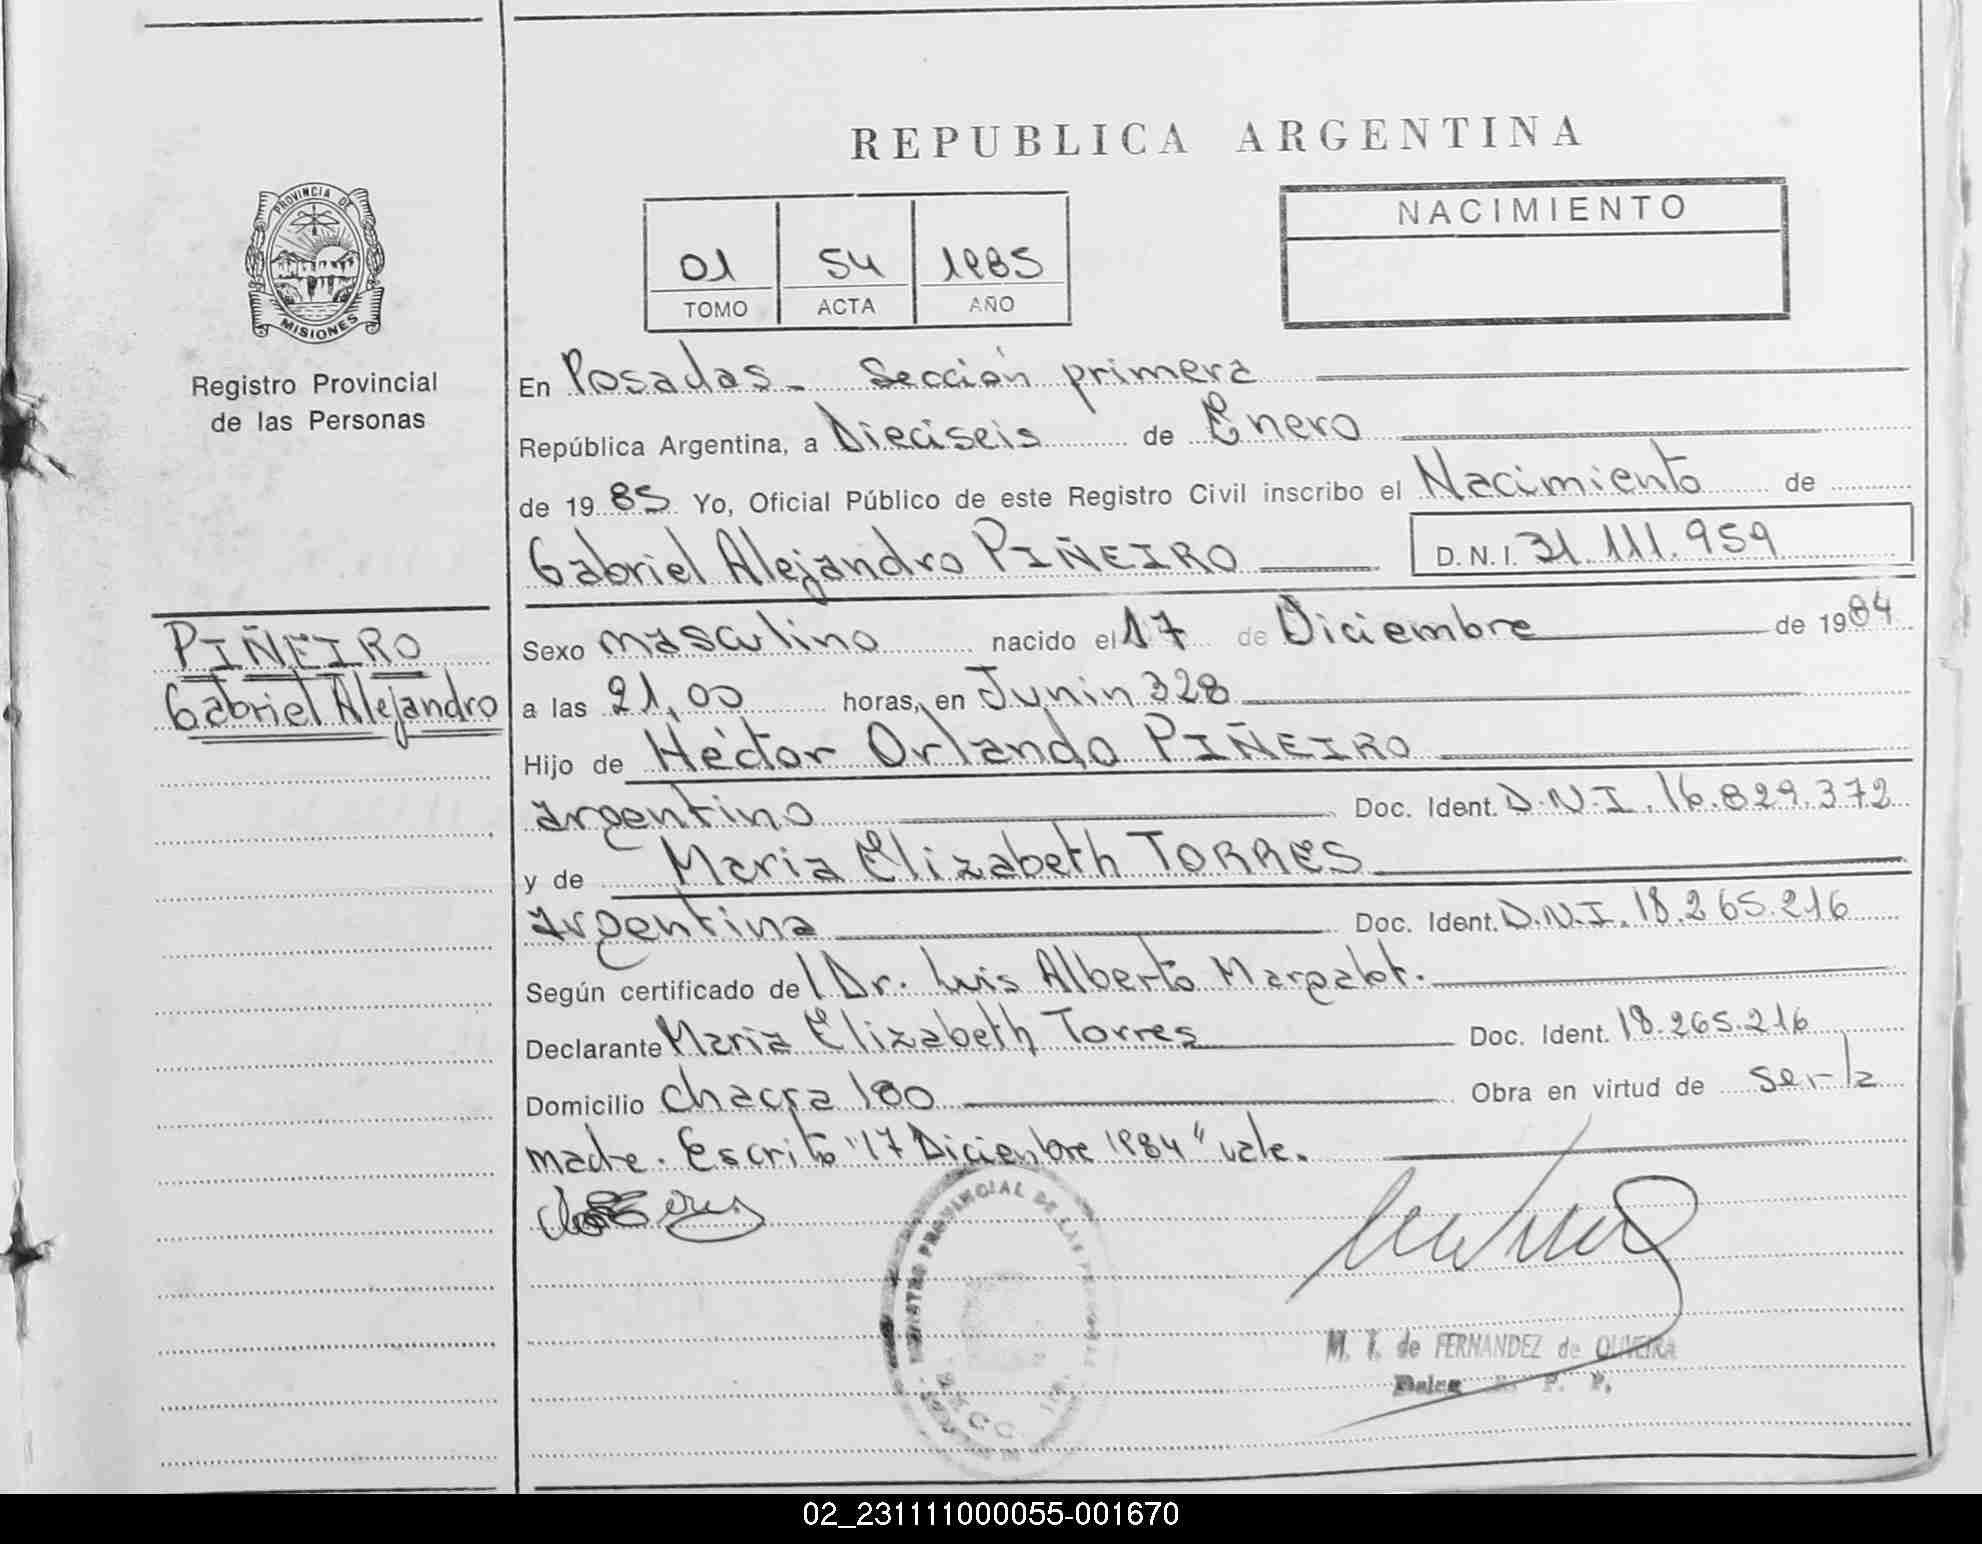 REPUBLICA ARGENTINA
PROVINCIA DE
MISIONES
Registro Provincial
de las Personas
01 54 1985
TOMO ACTA AÑO
NACIMIENTO
En Posadas - Sección primera
República Argentina, a Dieciseis de Enero
de 1985 Yo, Oficial Público de este Registro Civil inscribo el Nacimiento de
Gabriel Alejandro PIÑEIRO D.N.I. 31.111.959
PIÑEIRO
Gabriel Alejandro
Sexo masculino nacido el 17 de Diciembre de 1984
a las 21,00 horas, en Junin 328
Hijo de Héctor Orlando PIÑEIRO
argentino Doc. Ident. D.N.I. 16.829.372
y de Maria Elizabeth TORRES
Argentina Doc. Ident. D.N.I. 18.265.216
Según certificado del Dr. Luis Alberto Margalot.
Declarante Maria Elizabeth Torres Doc. Ident. 18.265.216
Domicilio Chacra 180 Obra en virtud de ser la
madre. Escrito "17 Diciembre 1984" vale.
REGISTRO PROVINCIAL DE LAS PERSONAS
M. I. de FERNANDEZ de OLIVEIRA
R. P. P.
02_231111000055-001670